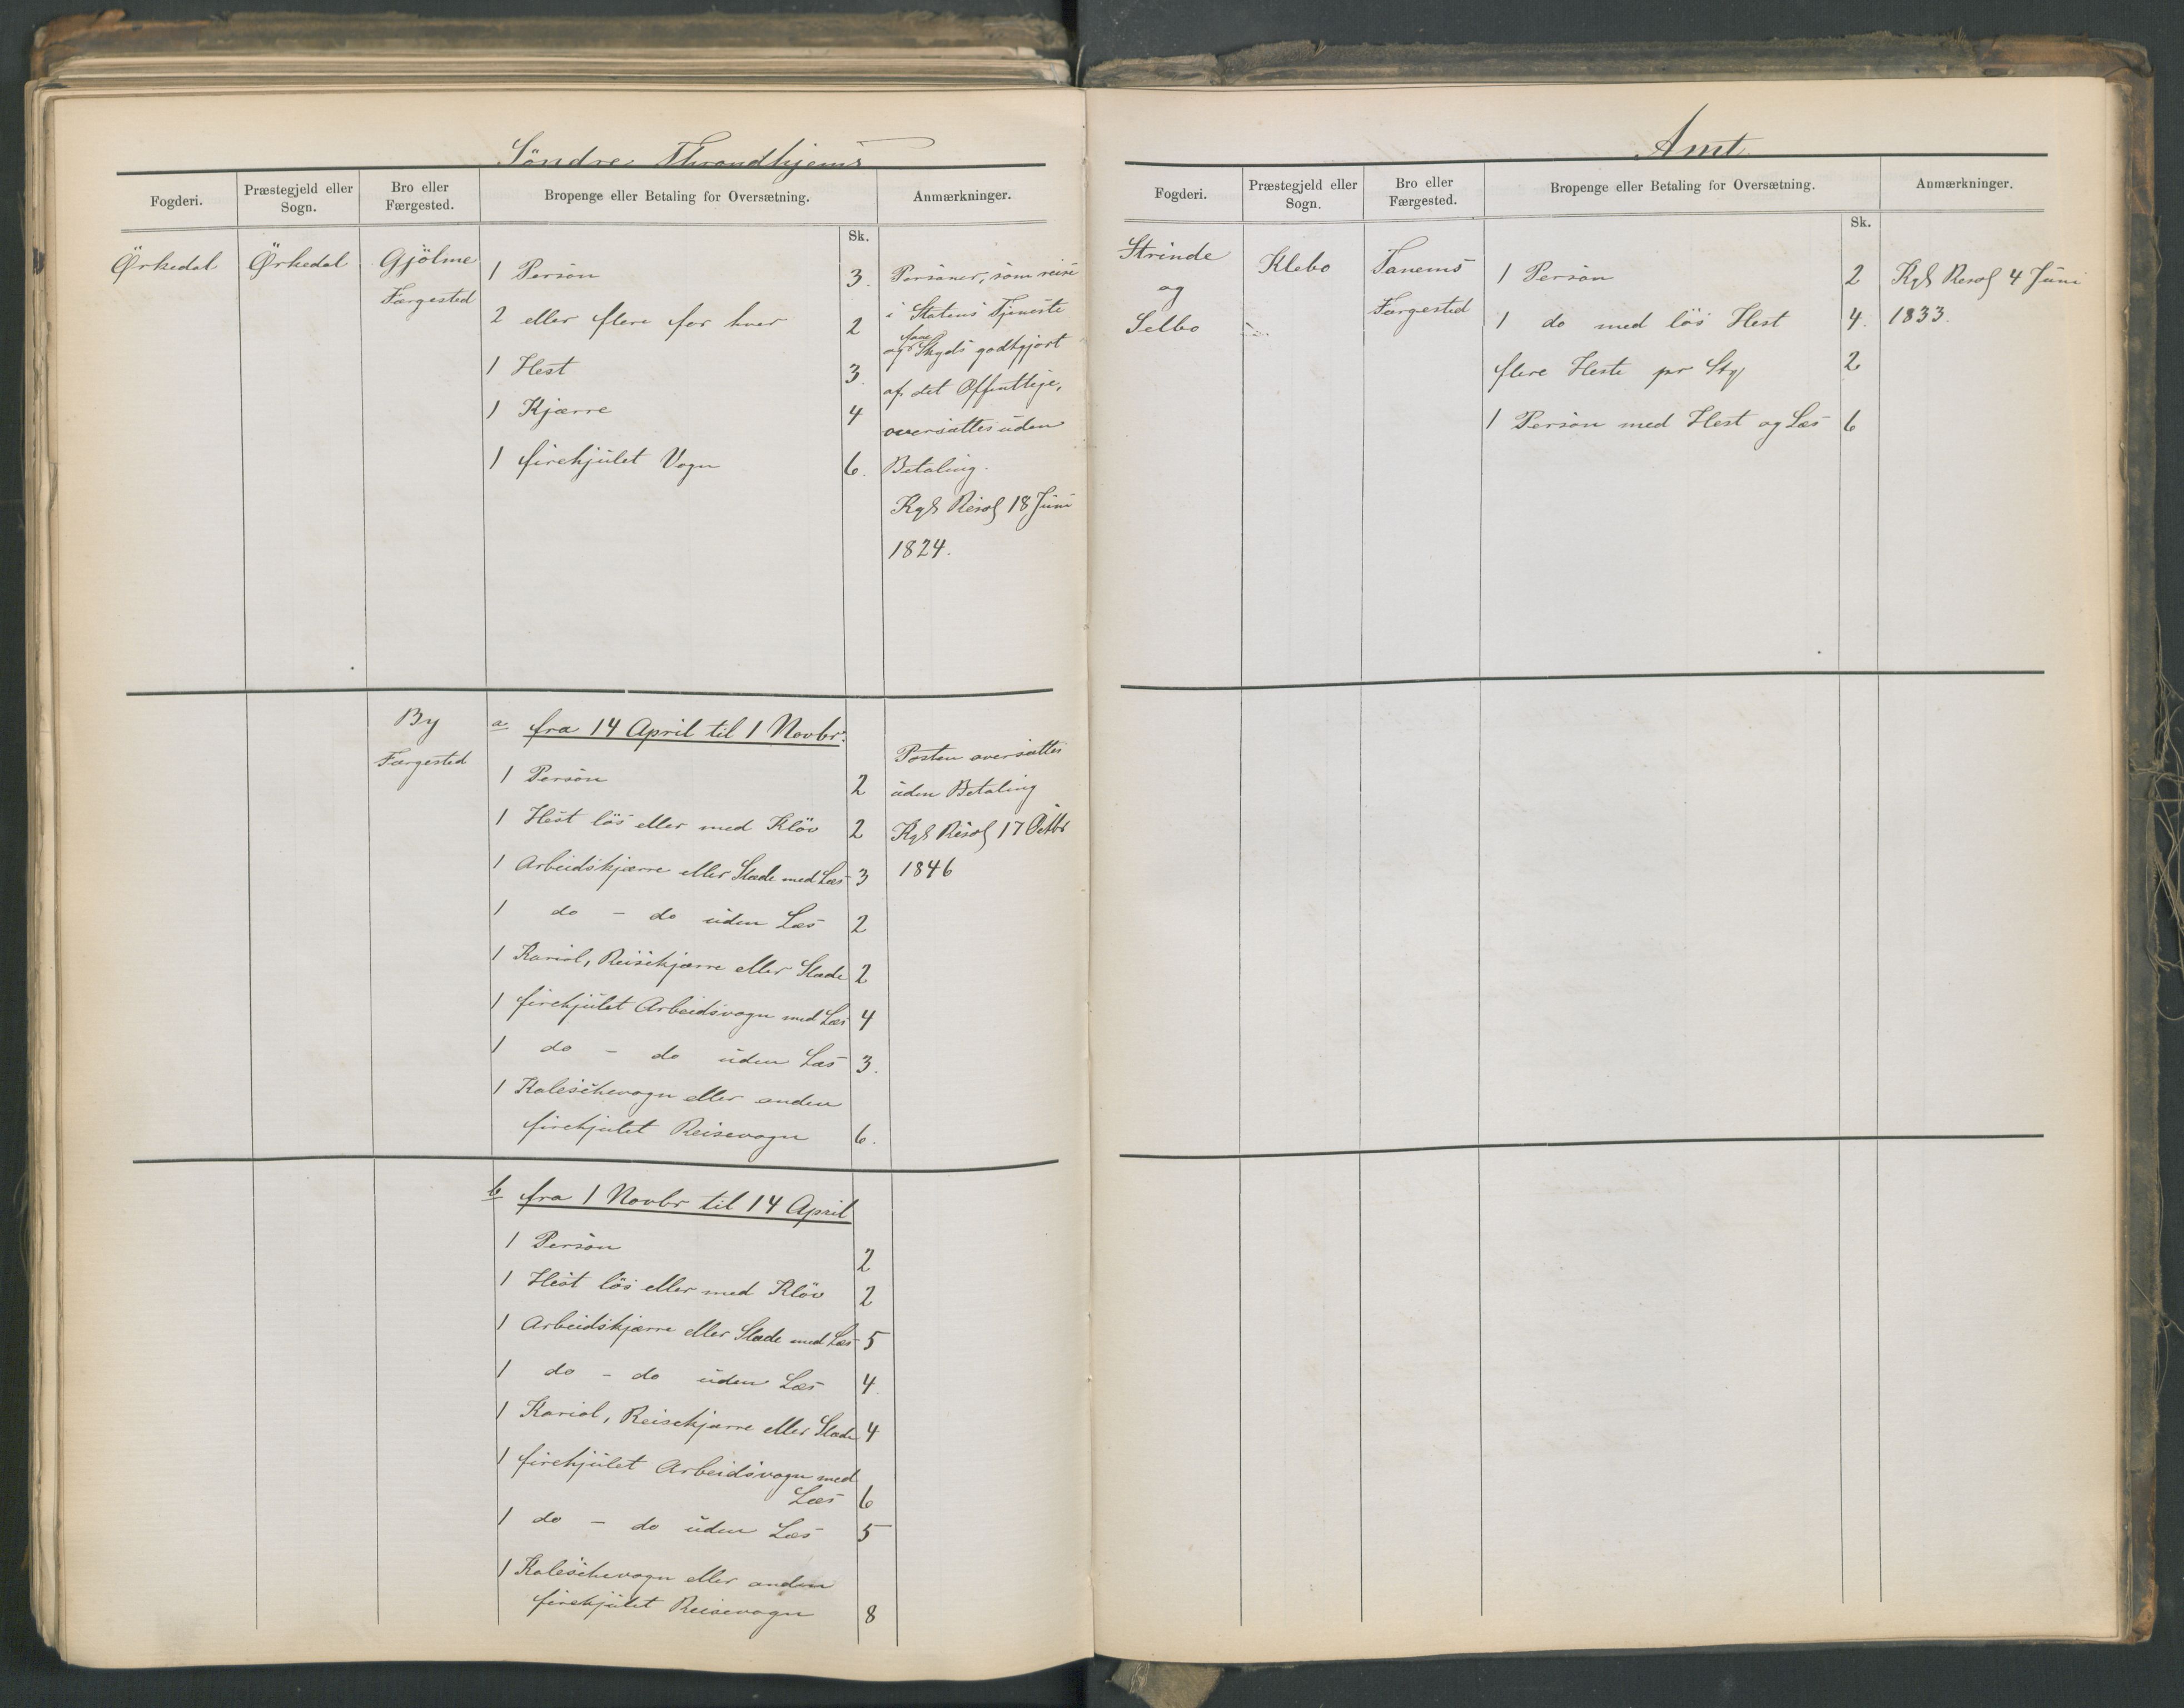 Söndre Throndhjems
Fogderi. Præstegjeld eller Sogn. Bro eller Færgested. Bropenge eller Betaling for Oversætning. Anmærkninger.
Sk.
Örkedal Örkedal Gjölme
Færgested
1 Person 3.
2 eller flere for hver 2
1 Hest 3.
1 Kjærre 4
1 firehjulet Vogn 6.
Personer, som reise
i Statens Tjeneste
og faae Skyds godtgjort
af det Offentlige,
oversættes uden
Betaling.
Kgl Resol 18 Juni
1824.
By
Færgested
a fra 14 April til 1 Novbr.
1 Person 2
1 Hest lös eller med Klöv 2
1 Arbeidskjærre eller Slæde med Læs 3
1 do - do uden Læs 2
1 Kariol, Reisekjærre eller Slæde 2
1 firehjulet Arbeidsvogn med Læs 4
1 do - do uden Læs 3.
1 Kaleschevogn eller anden
firehjulet Reisevogn 6.
Posten oversættes
uden Betaling
Kgl Resol 17 Octbr
1846
b fra 1 Novbr til 14 April
1 Person 2
1 Hest lös eller med Klöv 2
1 Arbeidskjærre eller Slæde med Læs 5
1 do - do uden Læs 4.
1 Kariol, Reisekjærre eller Slæde 4
1 firehjulet Arbeidsvogn med
Læs 6
1 do - do uden Læs 5
1 Kaleschevogn eller anden
firehjulet Reisevogn 8
Amt
Fogderi. Præstegjeld eller Sogn. Bro eller Færgested. Bropenge eller Betaling for Oversætning. Anmærkninger.
Sk.
Strinde
og
Selbo
Klebo
Tanems
Færgested
1 Person 2
1 do med lös Hest 4.
flere Heste pr Stk 2
1 Person med Hest og Læs 6
Kgl Resol 4 Juni
1833.